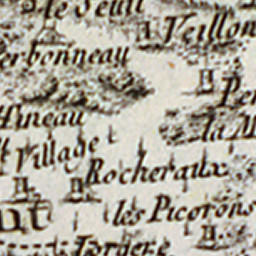 le Seuil
Veillon
erbonneau
Per
ffineau
la M
Village
Rocheraux
les Picorons